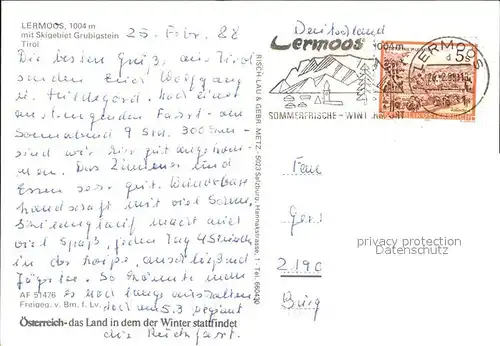 LERMOOS, 1004 m
mit Skigebiet Grubigstein
Tirol
25. Febr. 88
Die besten Grüße aus Tirol
senden Euch Wolfgang
u. Hildegard. Nach einer
anstrengenden Fahrt am
Sonnabend 9 Std. 300 km
sind wir hier gut angekom-
men. Das Zimmer und
Essen sehr gut. Wunderbare
Landschaft mit viel Sonne,
macht auch
viel Spaß, jeden Tag 4 Stunden
in der Loipe, anschließend
Jägertee. So könnte man
es noch lange aushalten
doch am 5.3 beginnt
die Rückfahrt.
AF 51476
Freigeg. v. Bm. f. Lv.
Österreich - das Land in dem der Winter stattfindet
RISCH-LAU & GEBR. METZ - 5023 Salzburg, Hannakstrasse, 1 - Tel. 660430
Deutschland
Lermoos 1004 m
SOMMERFRISCHE - WINTERSPORT
LERMOOS
S 5
Fam
Ger
219
Burg
privacy protection
oldthing.de